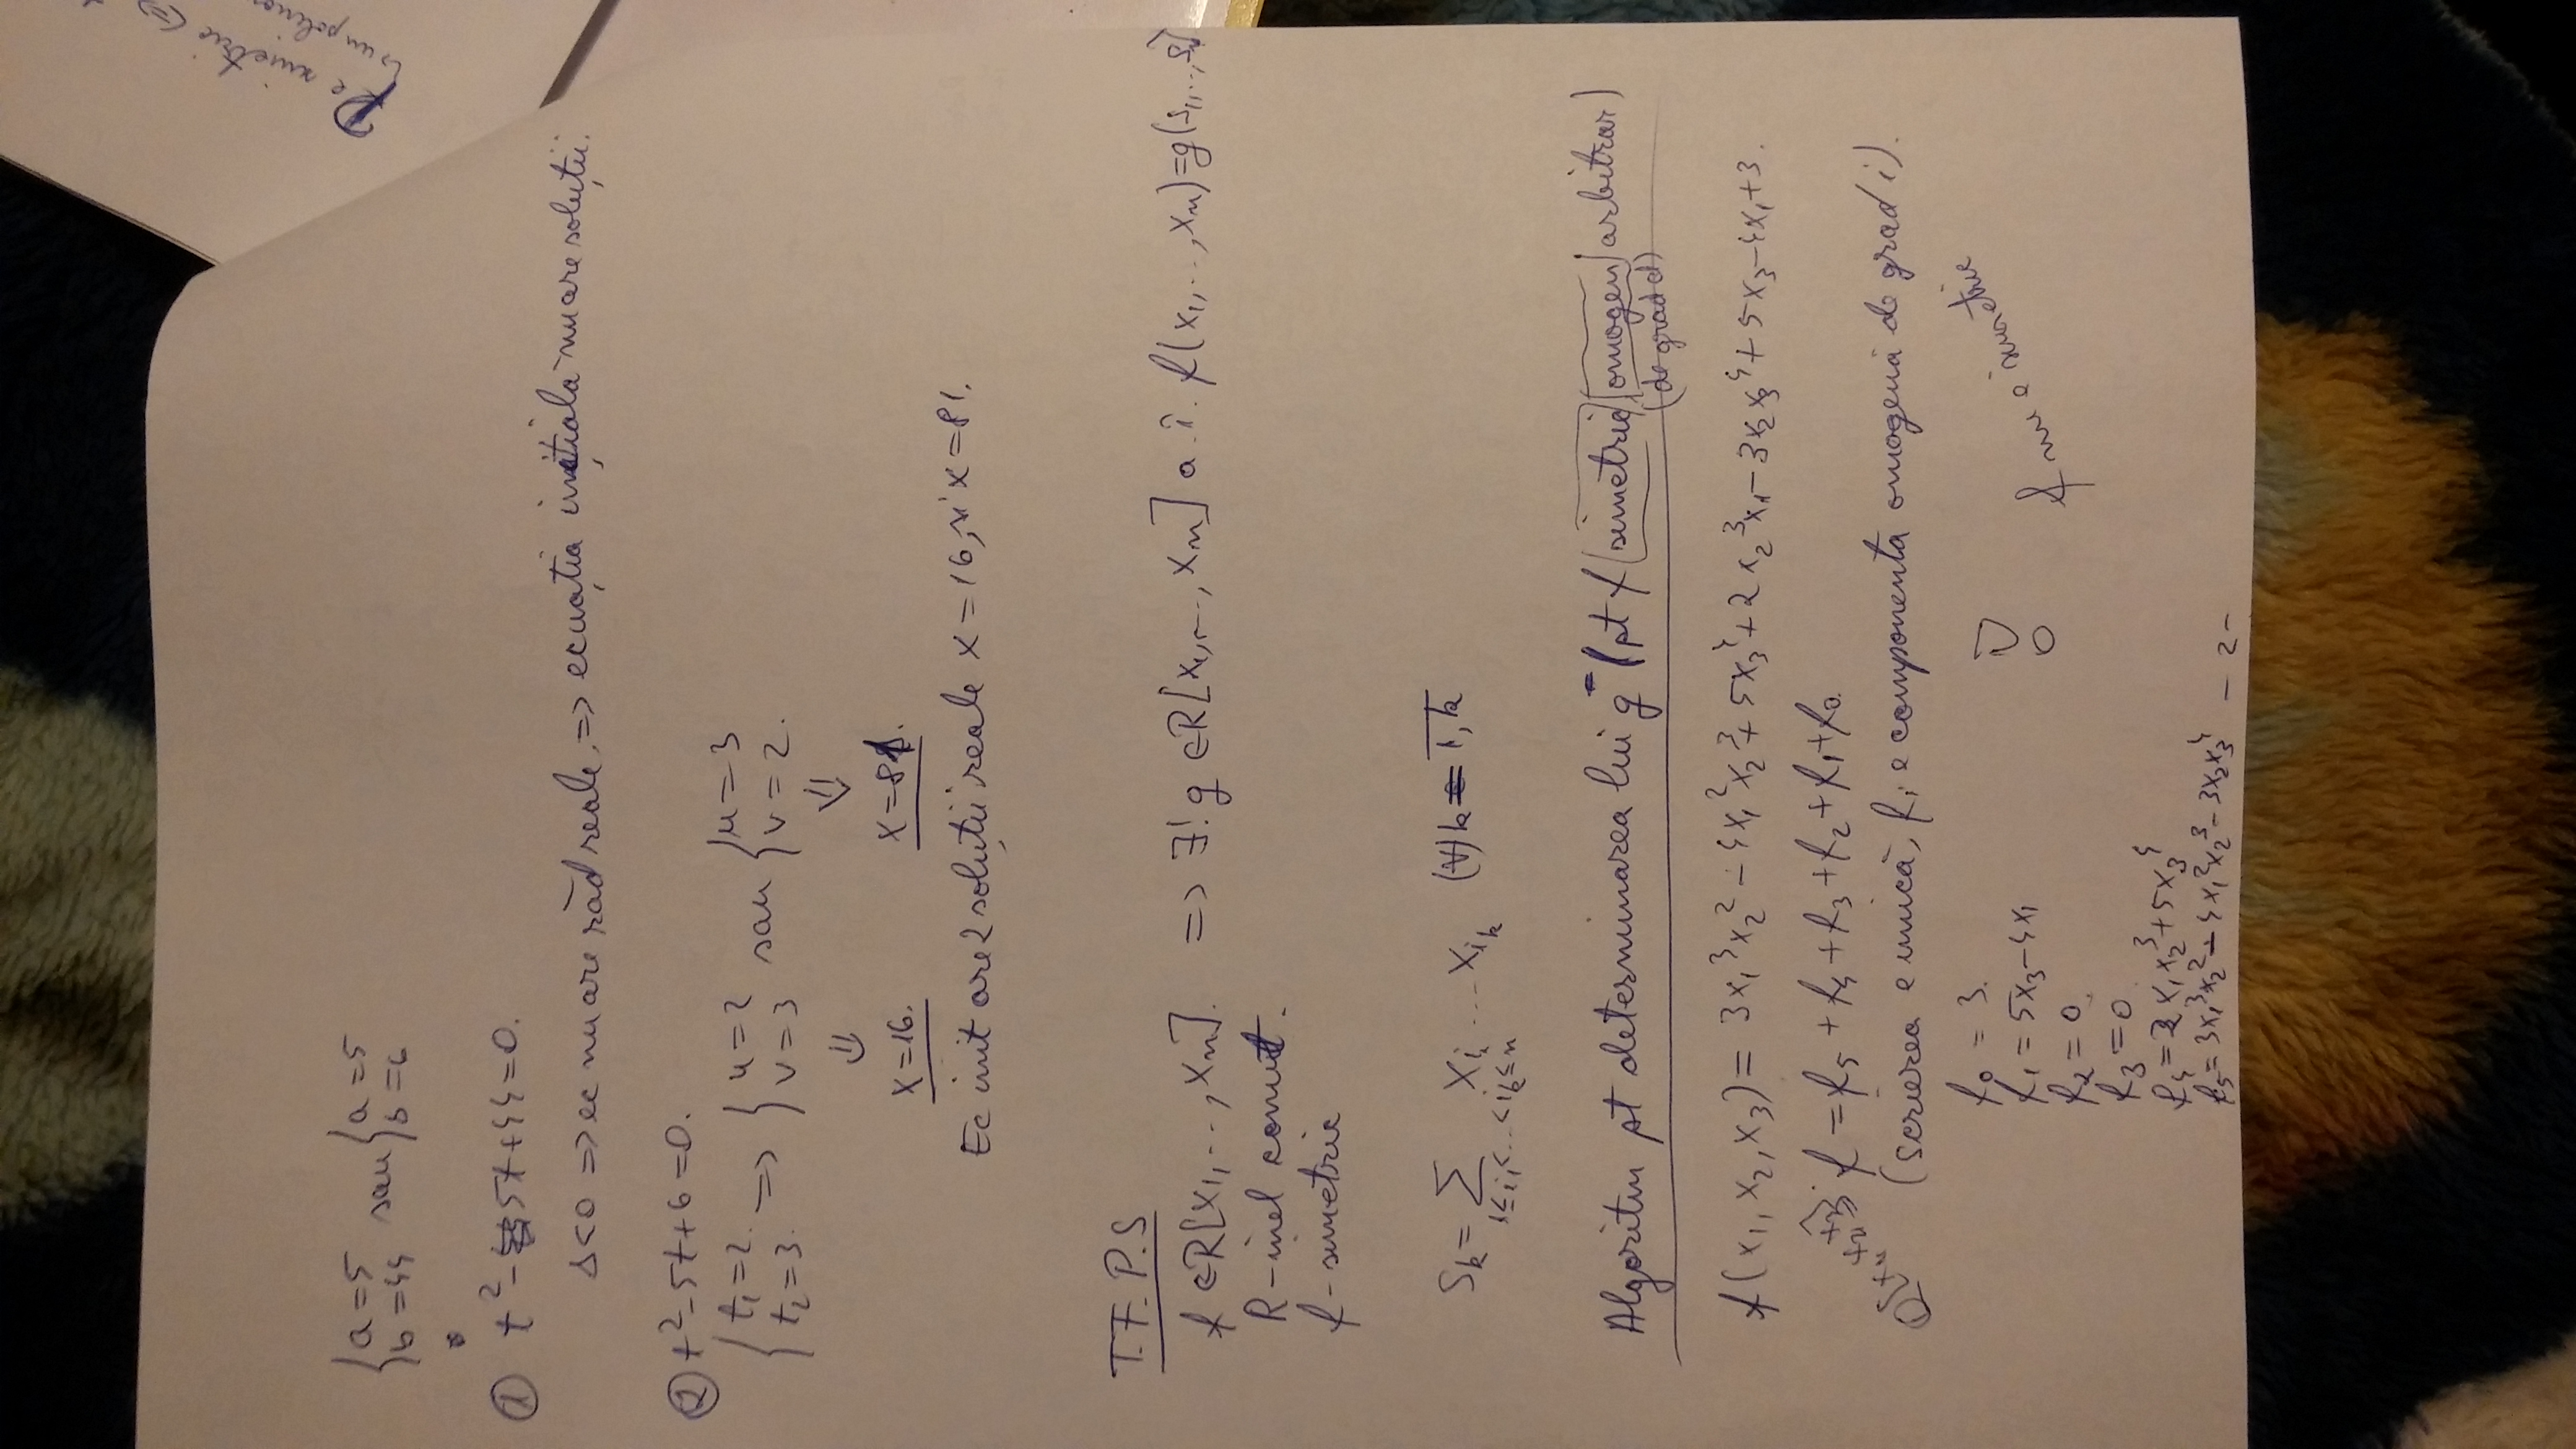 {a=5 {b=44 sau {a=5 {b=6
① t²-5t+44=0.
Δ<0 => ec nu are răd reale. => ecuația inițială nu are soluții.
② t²-5t+6=0.
{t₁=2. {t₂=3. => {u=2 {v=3 sau {u=3 {v=2.
⇓ ⇓
x=16. x=81.
Ec init are 2 soluții reale x=16, și x=81.
T.F.P.S
f ∈R[x₁,..,xₙ]. => ∃! g ∈R[x₁,..,xₙ] a.î. f(x₁,..,xₙ)=g(s₁,..,sₙ)
R-inel comut.
f-simetric
Sₖ= ∑ xᵢ₁ ... xᵢₖ (∀)k = 1,k
1≤i₁<..<iₖ≤n
Algoritm pt determinarea lui g (pt f (simetric) (omogen) arbitrar)
(de grad d)
f(x₁, x₂, x₃)= 3x₁³x₂² - 4x₁²x₂³ + 5x₃⁴ + 2x₂³x₁ - 3x₂x₃⁴ + 5x₃ - 4x₁ + 3.
Q[x₁,x₂,x₃]∋ f = f₅ + f₄ + f₃ + f₂ + f₁ + f₀.
(scrierea e unică, fᵢ e componenta omogenă de grad i).
f₀ = 3.
f₁ = 5x₃-4x₁
f₂ = 0.
f₃ = 0.
f₄ = 2x₁x₂³+5x₃⁴
f₅ = 3x₁³x₂² - 4x₁²x₂³ - 3x₂x₃⁴
f nu e simetric
-2-
e simetric (=>
un polino